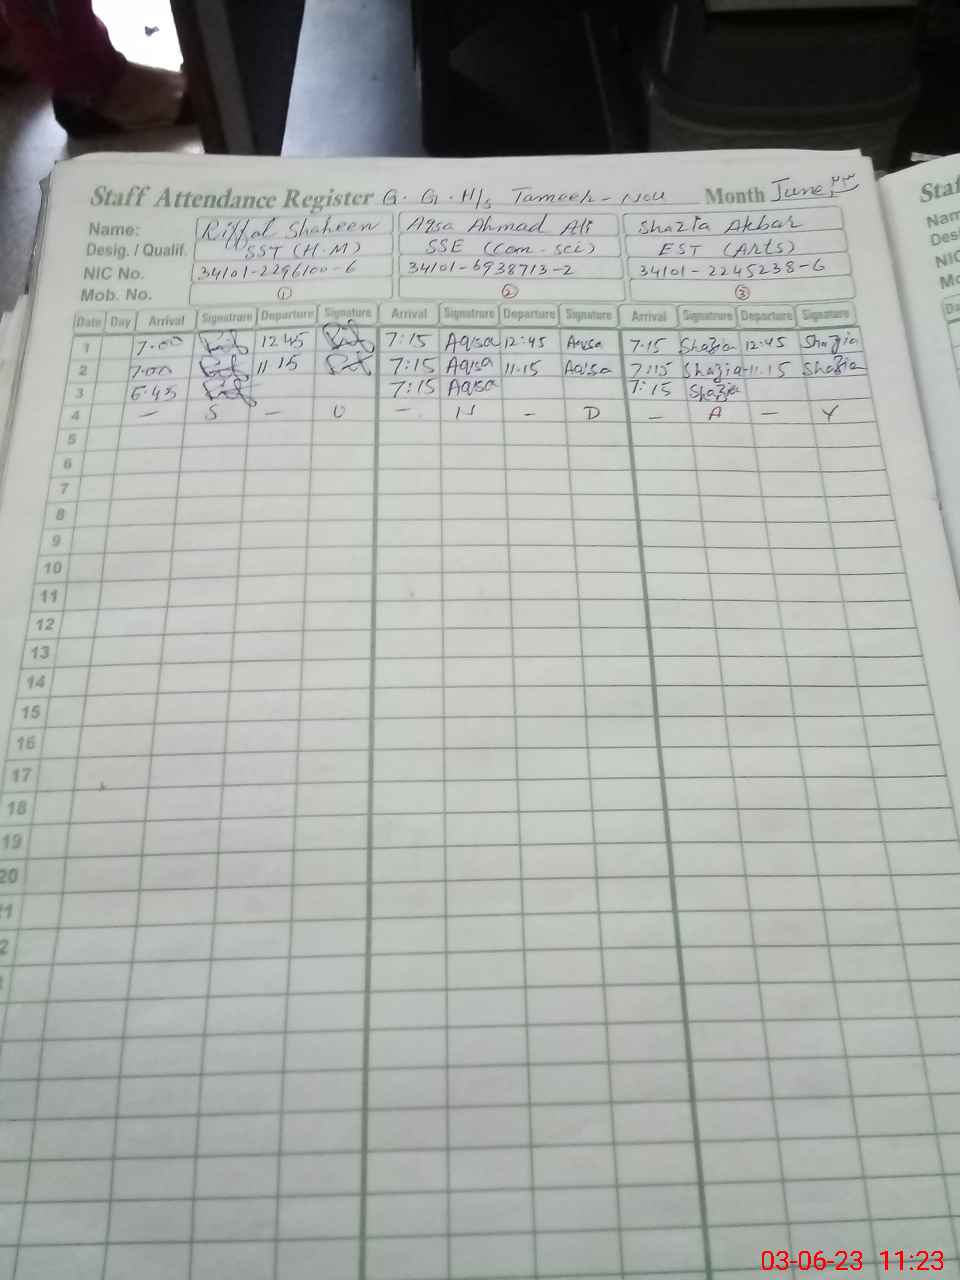 Staff Attendance Register G. G. H/s Tameer-Nou Month June, ۲۳
Name: Riffat Shaheen Aqsa Ahmad Ali Shazia Akbar
Desig. / Qualif. SST (H.M) SSE (Com-sci) EST (Arts)
NIC No. 34101-2296100-6 34101-6938713-2 34101-2245238-6
Mob. No. ① ② ③
Date Day Arrival Signature Departure Signature Arrival Signature Departure Signature Arrival Signature Departure Signature
1 7.00 12 45 7:15 Aqsa 12:45 Aqsa 7.15 Shazia 12:45 Shazia
2 7.00 11 15 7:15 Aqsa 11.15 Aqsa 7:15 Shazia 11.15 Shazia
3 6.45 7:15 Aqsa 7:15 Shazia
4 — S — U — N — D — A — Y
5
6
7
8
9
10
11
12
13
14
15
16
17
18
19
20
Staf
03-06-23 11:23